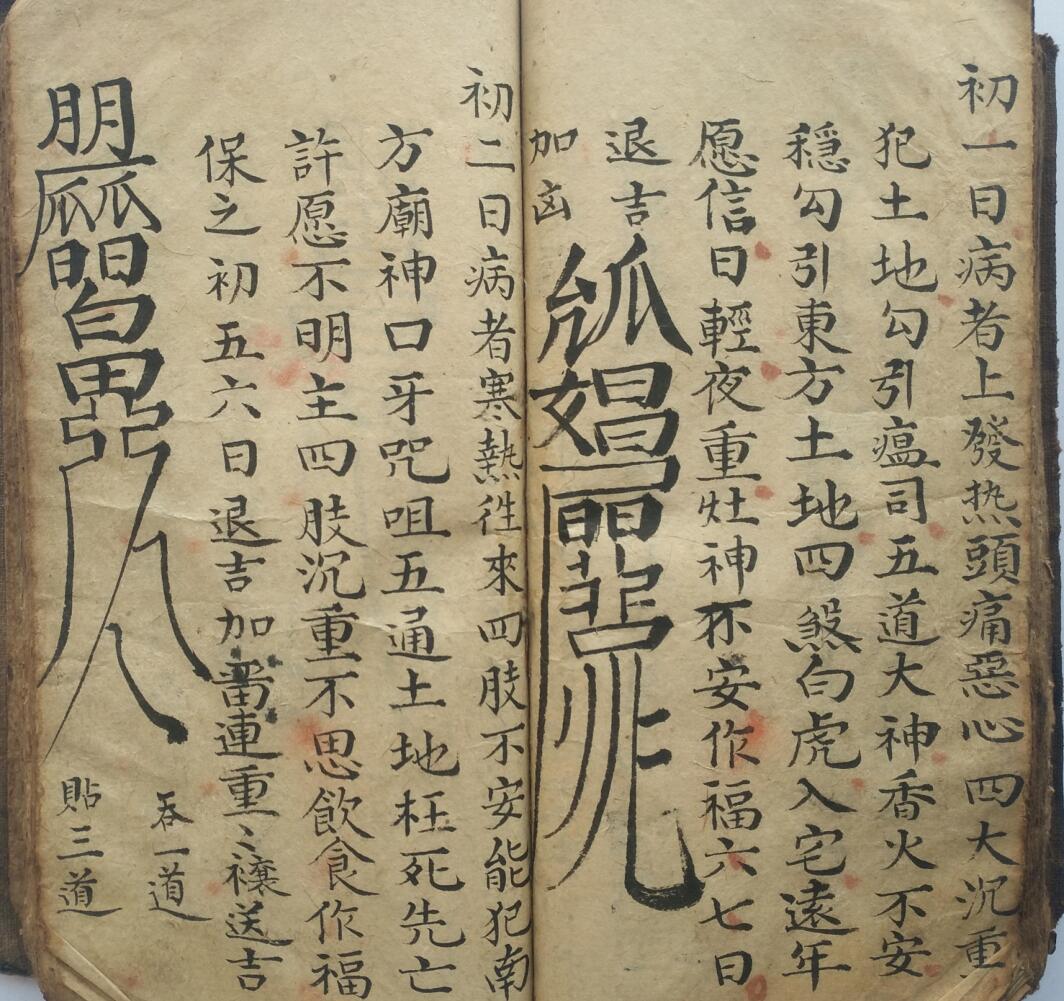 初一日病者上發热頭痛惡心四大沉重
犯土地勾引瘟司五道大神香火不安
穩勾引東方土地四煞白虎入宅遠年
愿信日輕夜重灶神不安作福六七日
退吉
加凶
初二日病者寒熱徃來四肢不安能犯南
方廟神口牙咒咀五通土地枉死先亡
許愿不明主四肢沉重不思飲食作福
保之初五六日退吉加畨連重〻禳送吉
吞一道
貼三道